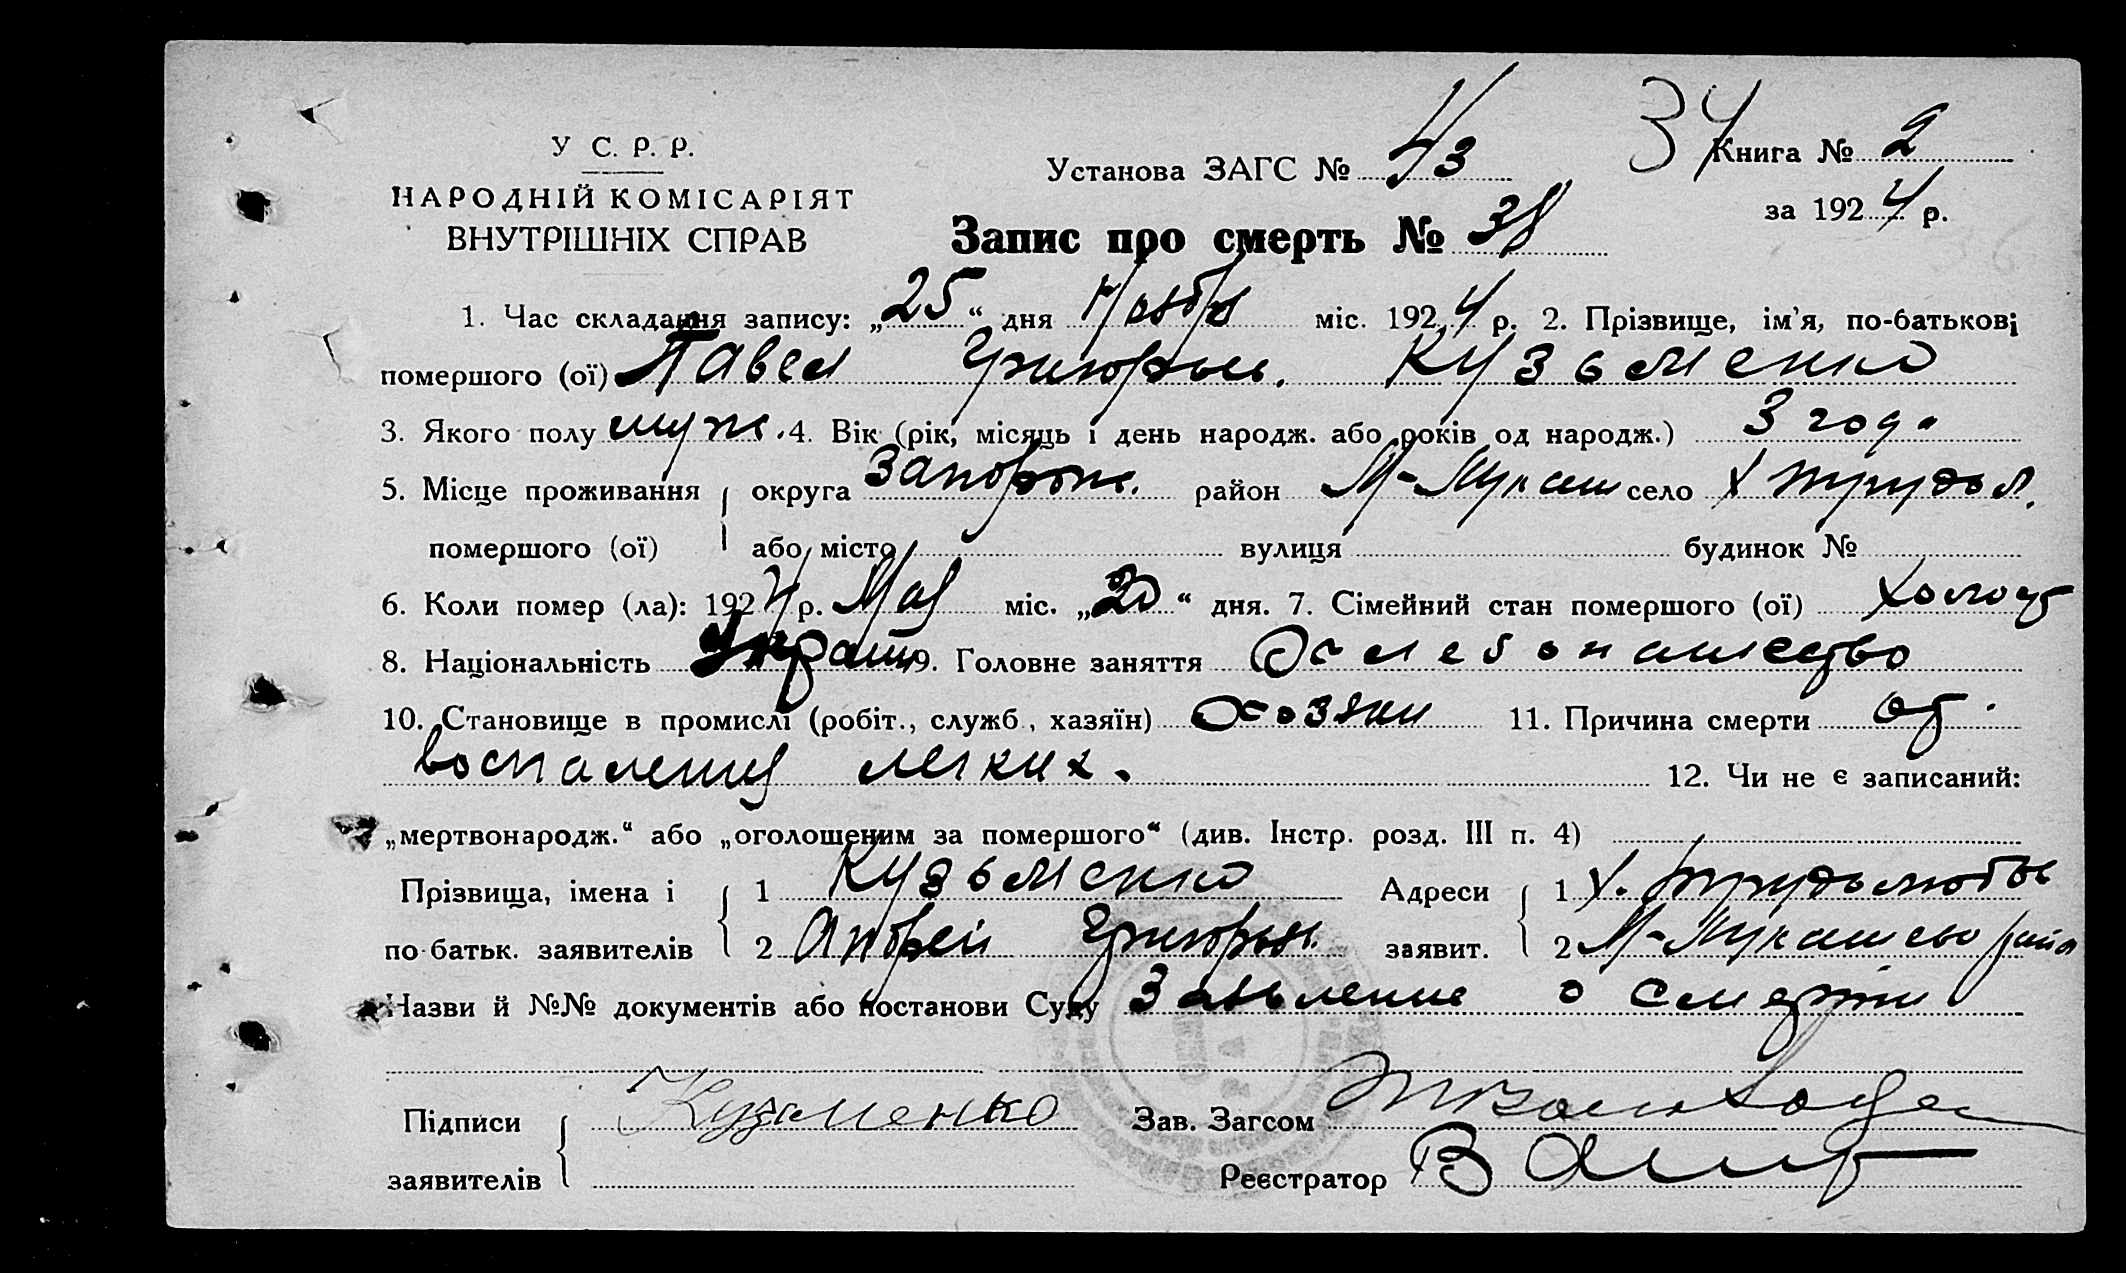 34
У С. Р. Р.
НАРОДНІЙ КОМІСАРІЯТ
ВНУТРІШНІХ СПРАВ
Установа ЗАГС № 43
Книга № 2
за 1924 р.
Запис про смерть № 38
1. Час складання запису: „25“ дня Ноябр міс. 1924 р. 2. Прізвище, ім'я, по-батькові
помершого (ої) Павел Григорьев. Кузьменко
3. Якого полу муж. 4. Вік (рік, місяць і день народж. або років од народж.) 3 год.
5. Місце проживання округа Запорож. район М-Лукаш село Х Трудол.
помершого (ої) або місто вулиця будинок №
6. Коли помер (ла): 1924 р. Мая міс. „20“ дня. 7. Сімейний стан помершого (ої) Холост
8. Національність 9. Головне заняття Хлебопашество
10. Становище в промислі (робіт., служб., хазяїн) Хозяин 11. Причина смерти от
воспаления легких. 12. Чи не є записаний:
„мертвонародж.“ або „оголошеним за помершого“ (див. Інстр. розд. III п. 4)
Прізвища, імена і 1 Кузьменко Адреси 1 Х. Трудолюбов
по-батьк. заявителів 2 Андрей Григорьев. заявит. 2 М-Лукашево район
Назви й №№ документів або постанови Суду Заявление о смерти
Підписи Кузменко Зав. Загсом
заявителів Реєстратор